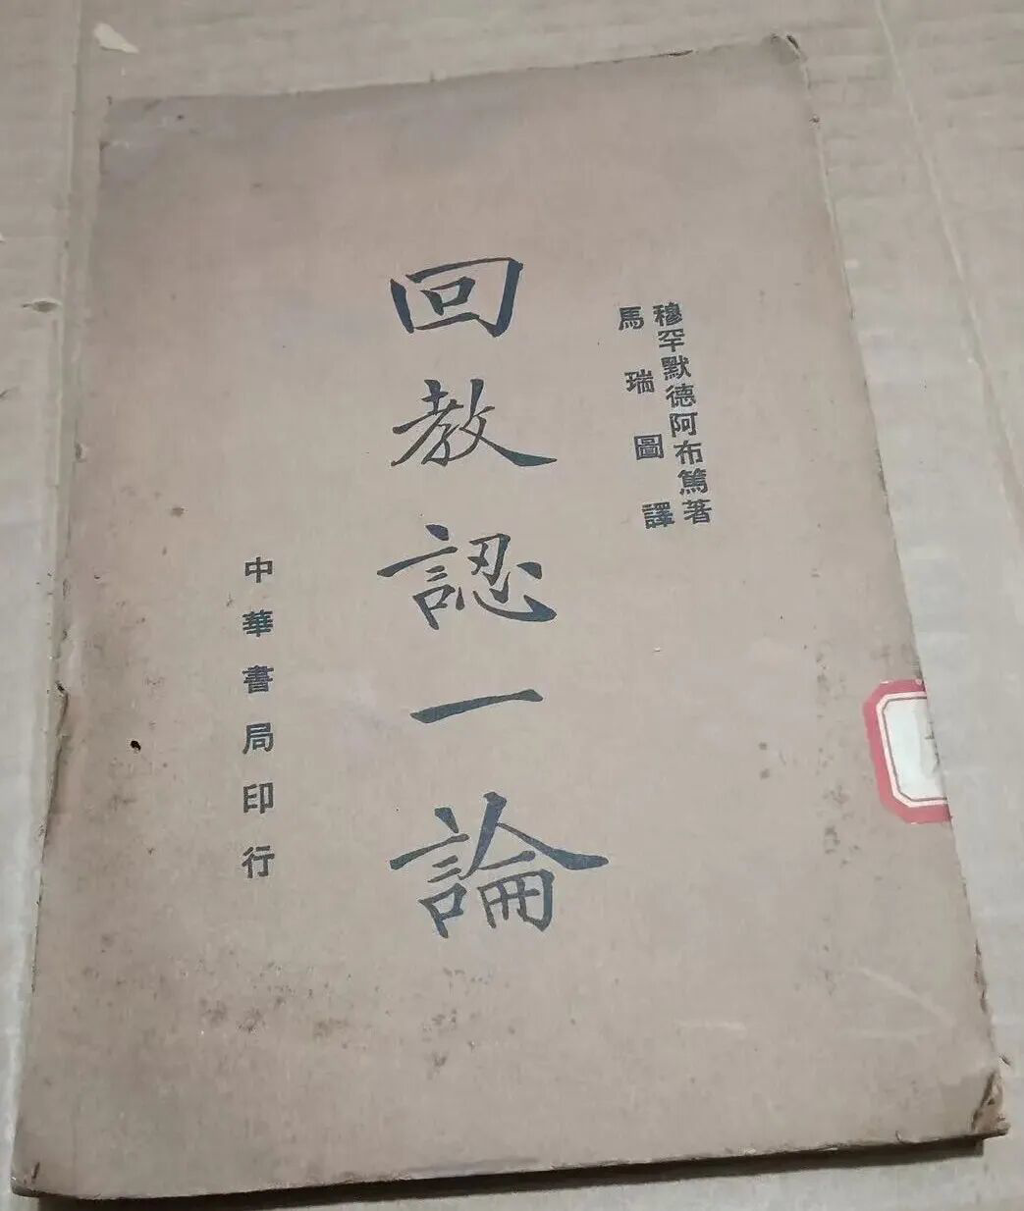 穆罕默德阿布篤著
馬瑞圖譯
回教認一論
中華書局印行